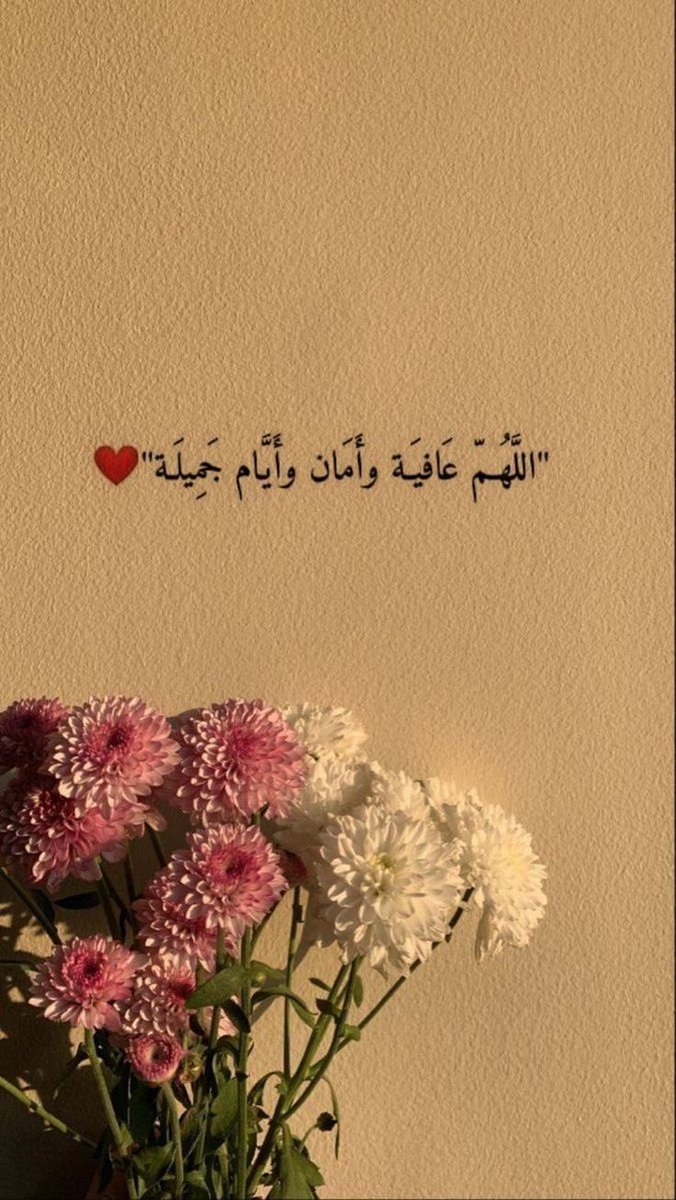 "اللَّهُمّ عَافيَـة وأَمَان وأَيَّام جَمِيلَـة"❤️